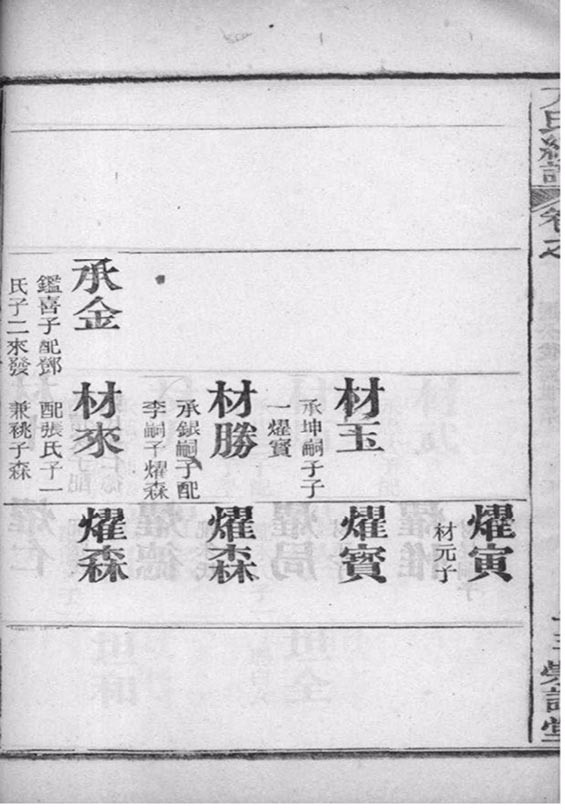 卷之
承金
鑑喜子配鄧
氏子二來發
材玉
承坤嗣子子
一燿寶
材勝
承銀嗣子配
李嗣子燿森
材來
配張氏子一
兼祧子森
燿寅
材元子
燿寶
燿森
燿森